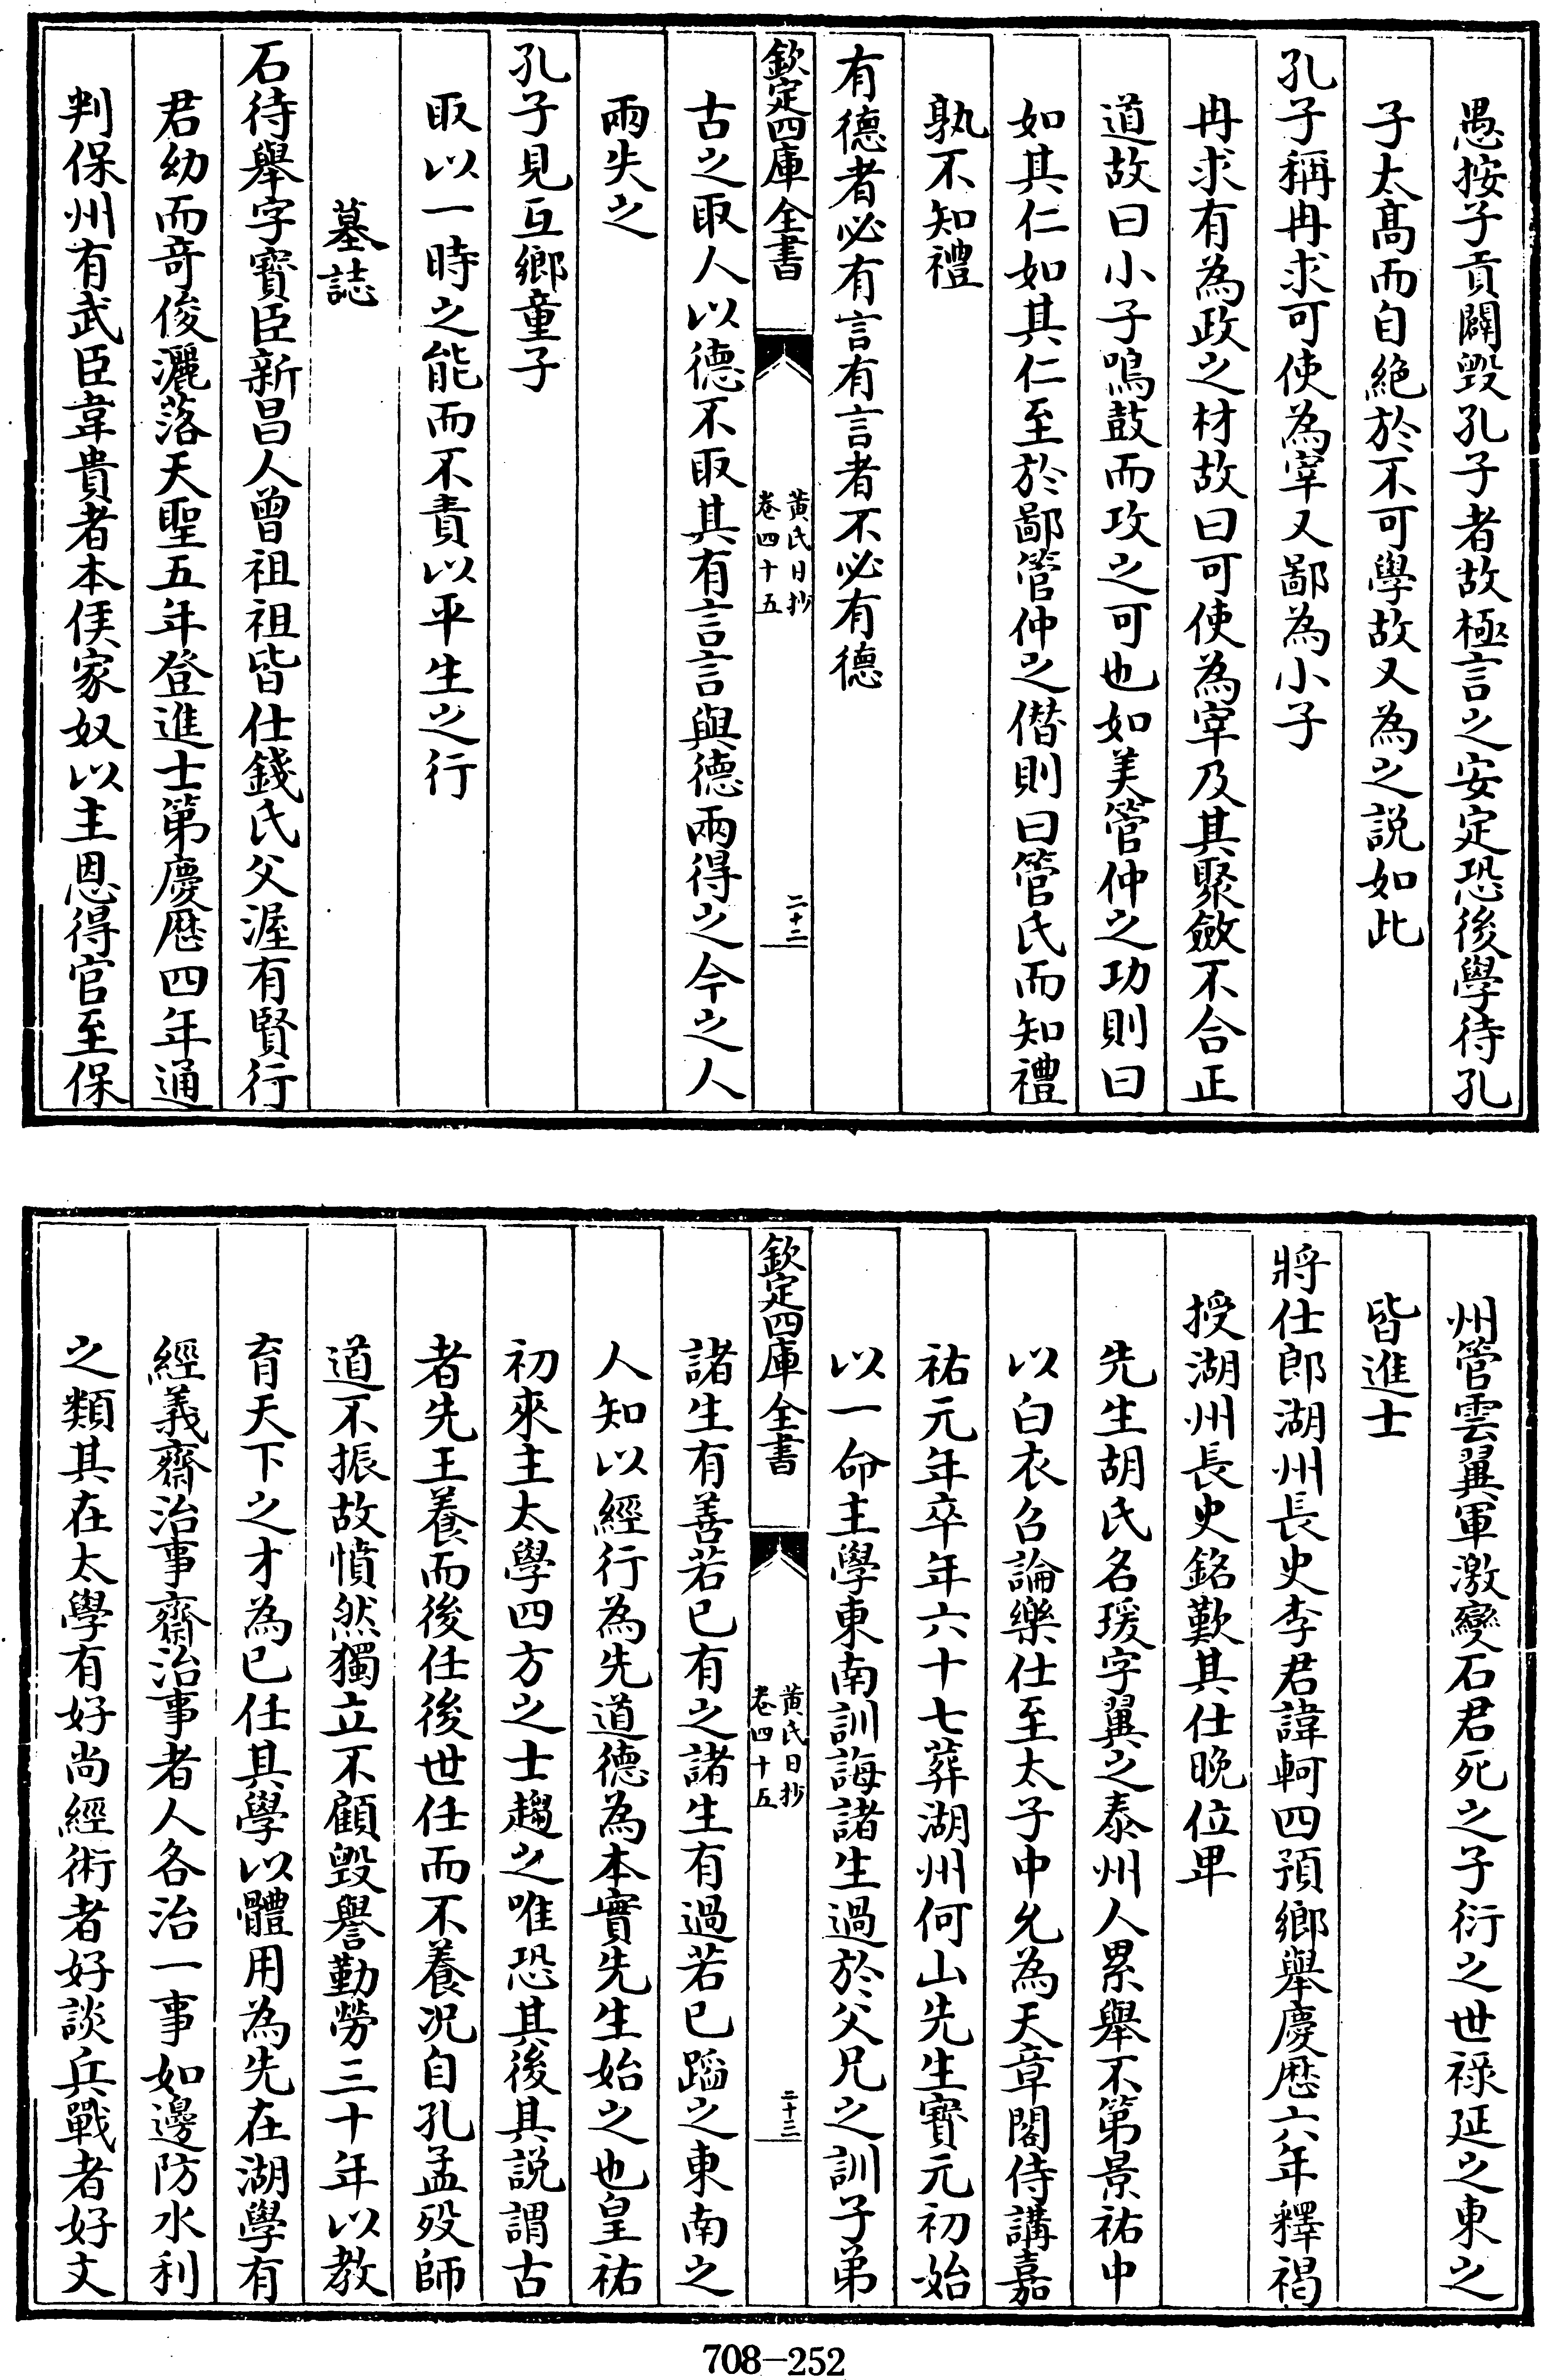 愚按子貢闢毀孔子者故極言之安定恐後學待孔
子太髙而自絶於不可學故又為之説如此
孔子稱冉求可使為宰又鄙為小子
冉求有為政之材故曰可使為宰及其聚斂不合正
道故曰小子鳴鼓而攻之可也如美管仲之功則曰
如其仁如其仁至於鄙管仲之僣則曰管氏而知禮
孰不知禮
有德者必有言有言者不必有德
欽定四庫全書
黄氏日抄
卷四十五
二十二
古之取人以德不取其有言言與德兩得之今之人
兩失之
孔子見互鄉童子
取以一時之能而不責以平生之行
墓誌
石待舉字寳臣新昌人曾祖祖皆仕錢氏父渥有賢行
君幼而竒俊灑落天聖五年登進士第慶厯四年通
判保州有武臣韋貴者本侯家奴以主恩得官至保
州管雲翼軍激變石君死之子衍之世祿延之東之
皆進士
將仕郎湖州長史李君諱軻四預鄉舉慶厯六年釋褐
授湖州長史銘歎其仕晚位卑
先生胡氏名瑗字翼之泰州人累舉不第景祐中
以白衣召論樂仕至太子中允為天章閣侍講嘉
祐元年卒年六十七葬湖州何山先生寳元初始
以一命主學東南訓誨諸生過於父兄之訓子弟
欽定四庫全書
黄氏日抄
卷四十五
二十三
諸生有善若已有之諸生有過若已蹈之東南之
人知以經行為先道德為本實先生始之也皇祐
初來主太學四方之士趨之唯恐其後其説謂古
者先王養而後任後世任而不養况自孔孟歿師
道不振故憤然獨立不顧毀譽勤勞三十年以教
育天下之才為已任其學以體用為先在湖學有
經義齋治事齋治事者人各治一事如邊防水利
之類其在太學有好尚經術者好談兵戰者好文
708-252